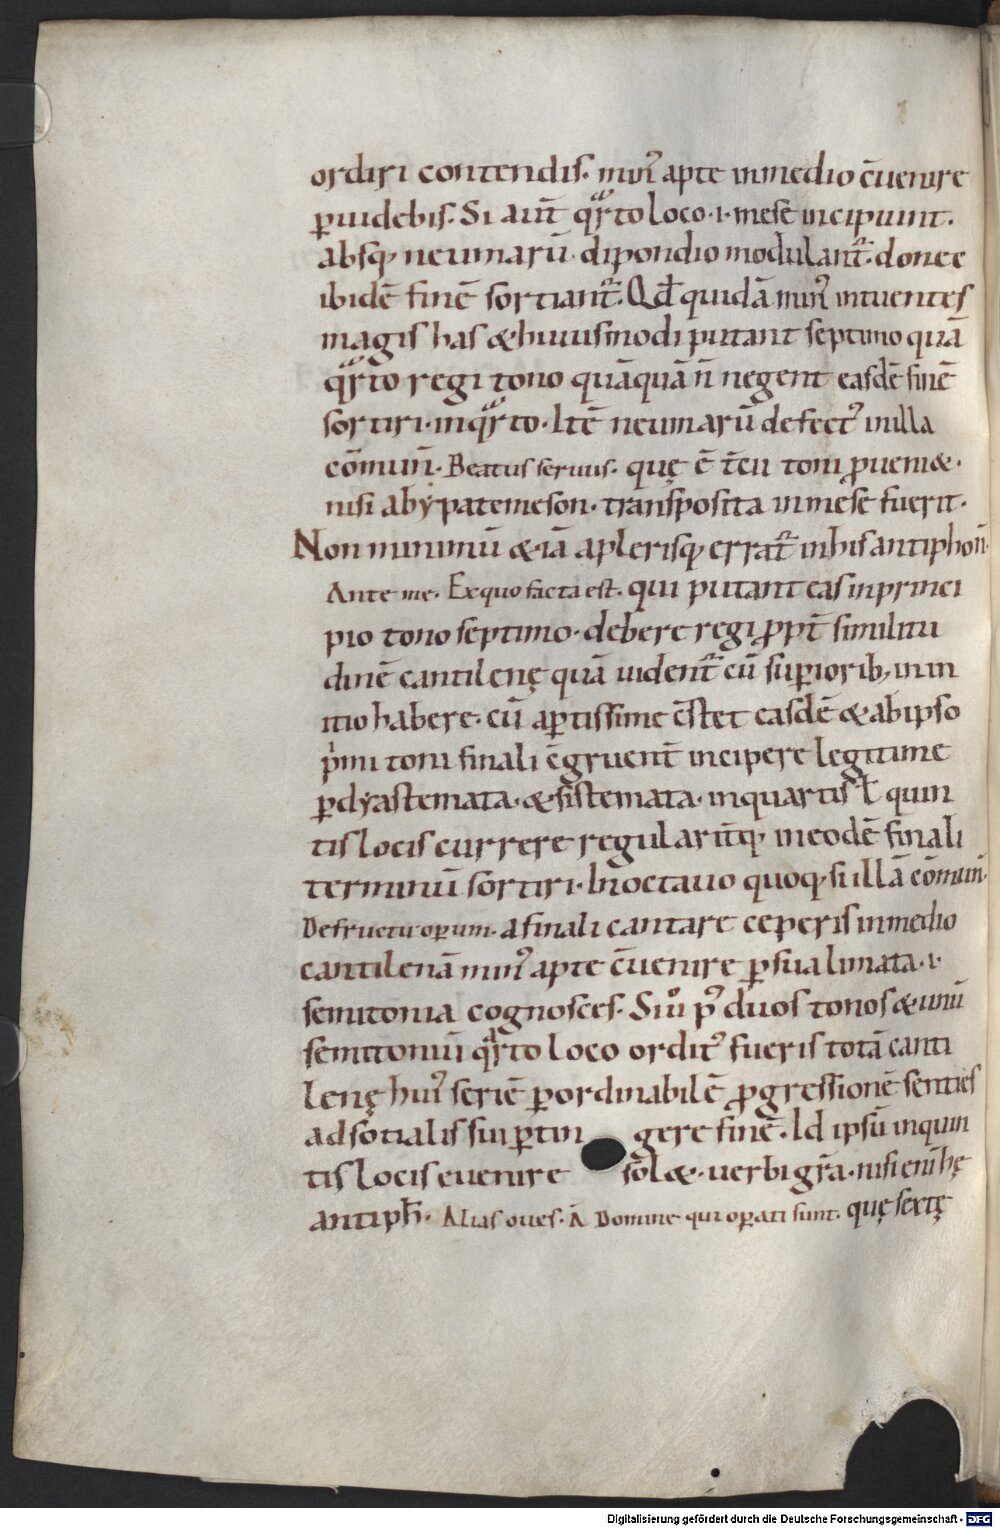 ordiri contendis· min᷒ apte inmedio c̄uenire
ꝑuidebis· Si aut̄ qͣrto loco ·i· mese incipiunt·
absq; neumarū dipondio modulant᷑· donec
ibidē finē sortiant᷑· Qd̄ quidā min᷒ intuentes
magis has & huiusmodi putant septimo quā
qͣrto regi tono quāquā n̄ negent easdē finē
sortiri· inqͣrto· Itē neumarū defect᷒ in illa
cōmuń· Beatus seruus· quę ē t̄cii toni ꝓueni&·
nisi abypatemeson· transposita inmese fuerit·
Non minimū & iā aplerisq; errat᷑ inhis antiphoń·
Ante me· Exquo facta est· qui putant eas inprinci
pio tono septimo· debere regi ꝓpt̄ similitu
dinē cantilenę quā uident᷑ cū suꝑiorib; in in
itio habere· cū aꝑtissime c̄stet easdē & abipso
p̍mi toni finali c̄gruent̄ incipere legitime
ꝑdyastemata· & sistemata· inquartis ł quin
tis locis currere regularit̄q; ineodē finali
terminū sortiri· In octauo quoq; si illā cōmuń·
Defructu oꝑum· afinali cantare ceperis inmedio
cantilenā min᷒ apte c̄uenire ꝑ sua limata ·i·
semitonia cognosces· Siu̾ p᷒ duos tonos & unū
semitoniū qͣrto loco ordit᷒ fueris totā canti
lenę hui᷒ seriē ꝑordinabilē ꝓgressionē senties
ad sotialis sui ꝑtin gere finē· Id ipsū inquin
tis locis euenire sol&· uerbi gr̄a· nisi eni̅ hę
antiph̄· Alias oues· A̅ Domine qui oꝑati sunt· quę sextę
Digitalisierung gefördert durch die Deutsche Forschungsgemeinschaft - DFG